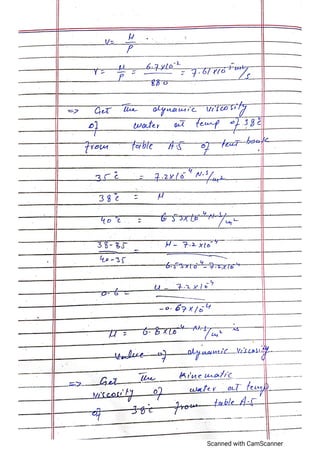 ν = μ/ρ
ν = μ/ρ = 6.7×10⁻²/880 = 7.61×10⁻⁵ m²/s
=> Get the dynamic viscosity
of water at temp of 38°C
from table A-5 of text book
35°C = 7.2×10⁻⁴ N.S/m²
38°C = μ
40°C = 6.53×10⁻⁴ N.S/m²
38-35/40-35 = μ-7.2×10⁻⁴/6.53×10⁻⁴-7.2×10⁻⁴
0.6 = μ-7.2×10⁻⁴/-0.67×10⁻⁴
μ = 6.8×10⁻⁴ N.S/m² is
value of dynamic viscosity.
=> Get the kinematic
viscosity of water at temp
of 38°C from table A-5
Scanned with CamScanner